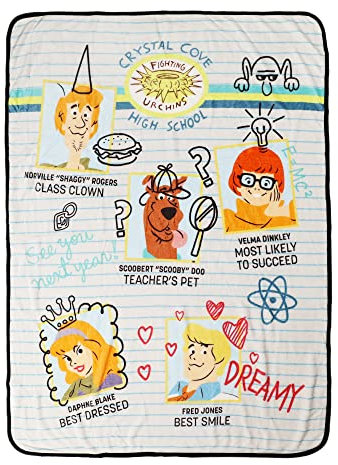 CRYSTAL COVE
FIGHTING
URCHINS
HIGH SCHOOL
NORVILLE "SHAGGY" ROGERS
CLASS CLOWN
E=MC²
VELMA DINKLEY
MOST LIKELY
TO SUCCEED
SCOOBERT "SCOOBY" DOO
TEACHER'S PET
See you
next year!
DAPHNE BLAKE
BEST DRESSED
FRED JONES
BEST SMILE
DREAMY